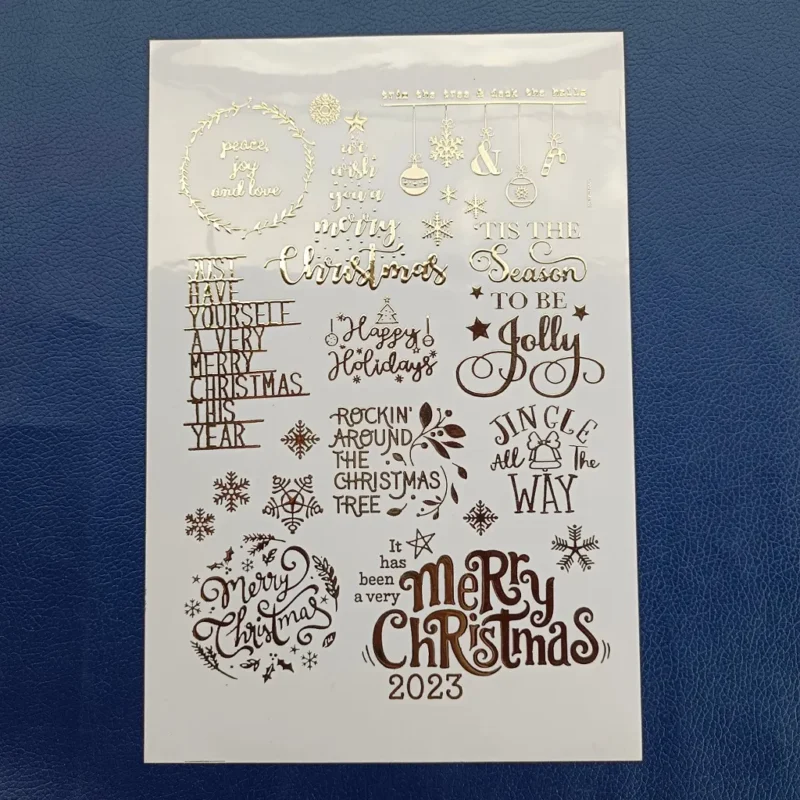 trim the tree & deck the halls
&
peace,
joy
and love
we
wish
you a
merry
Christmas
'TIS THE
Season
TO BE
Jolly
JUST
HAVE
YOURSELF
A VERY
MERRY
CHRISTMAS
THIS
YEAR
Happy
Holidays
ROCKIN'
AROUND
THE
CHRISTMAS
TREE
JINGLE
All The
WAY
Merry
Christmas
It
has
been
a very
MeRRy
ChRistmas
2023